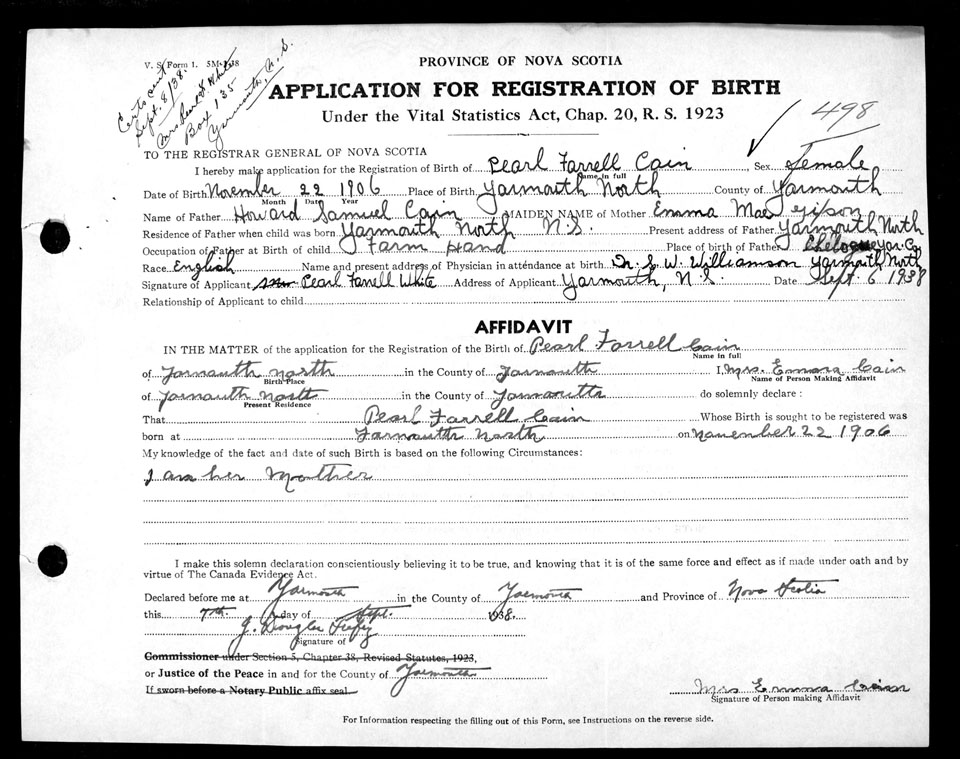 V. S. Form 1. 5M-
Certs sent
Sept. 8/38.
Mrs Pearl F White
Box 135
Yarmouth, N. S.
PROVINCE OF NOVA SCOTIA
APPLICATION FOR REGISTRATION OF BIRTH
Under the Vital Statistics Act, Chap. 20, R. S. 1923
498
TO THE REGISTRAR GENERAL OF NOVA SCOTIA
I hereby make application for the Registration of Birth of Pearl Farrell Cain Sex Female
Name in full
Date of Birth November 22 1906 Place of Birth Yarmouth North County of Yarmouth
Month Date Year
Name of Father Howard Samuel Cain MAIDEN NAME of Mother Emma Mae
Residence of Father when child was born Yarmouth North N.S. Present address of Father Yarmouth North
Occupation of Father at Birth of child Farm Hand Place of birth of Father Yar. Co
Race English Name and present address of Physician in attendance at birth Dr. S. W. Williamson Yarmouth North
Signature of Applicant Pearl Farrell White Address of Applicant Yarmouth, N.S. Date Sept. 6 1938
Relationship of Applicant to child
AFFIDAVIT
IN THE MATTER of the application for the Registration of the Birth of Pearl Farrell Cain
Name in full
of Yarmouth North in the County of Yarmouth I, Mrs. Emma Cain
Birth Place Name of Person Making Affidavit
of Yarmouth North in the County of Yarmouth do solemnly declare :
Present Residence
That Pearl Farrell Cain Whose Birth is sought to be registered was
born at Yarmouth North on November 22 1906
My knowledge of the fact and date of such Birth is based on the following Circumstances:
I am her Mother
I make this solemn declaration conscientiously believing it to be true, and knowing that it is of the same force and effect as if made under oath and by
virtue of The Canada Evidence Act.
Declared before me at Yarmouth in the County of Yarmouth and Province of Nova Scotia
this 7th. day of Sept. 1938.
J. Douglas
Signature of
Commissioner under Section 5, Chapter 38, Revised Statutes, 1923,
or Justice of the Peace in and for the County of Yarmouth
If sworn before a Notary Public affix seal
Mrs Emma Cain
Signature of Person making Affidavit
For Information respecting the filling out of this Form, see Instructions on the reverse side.